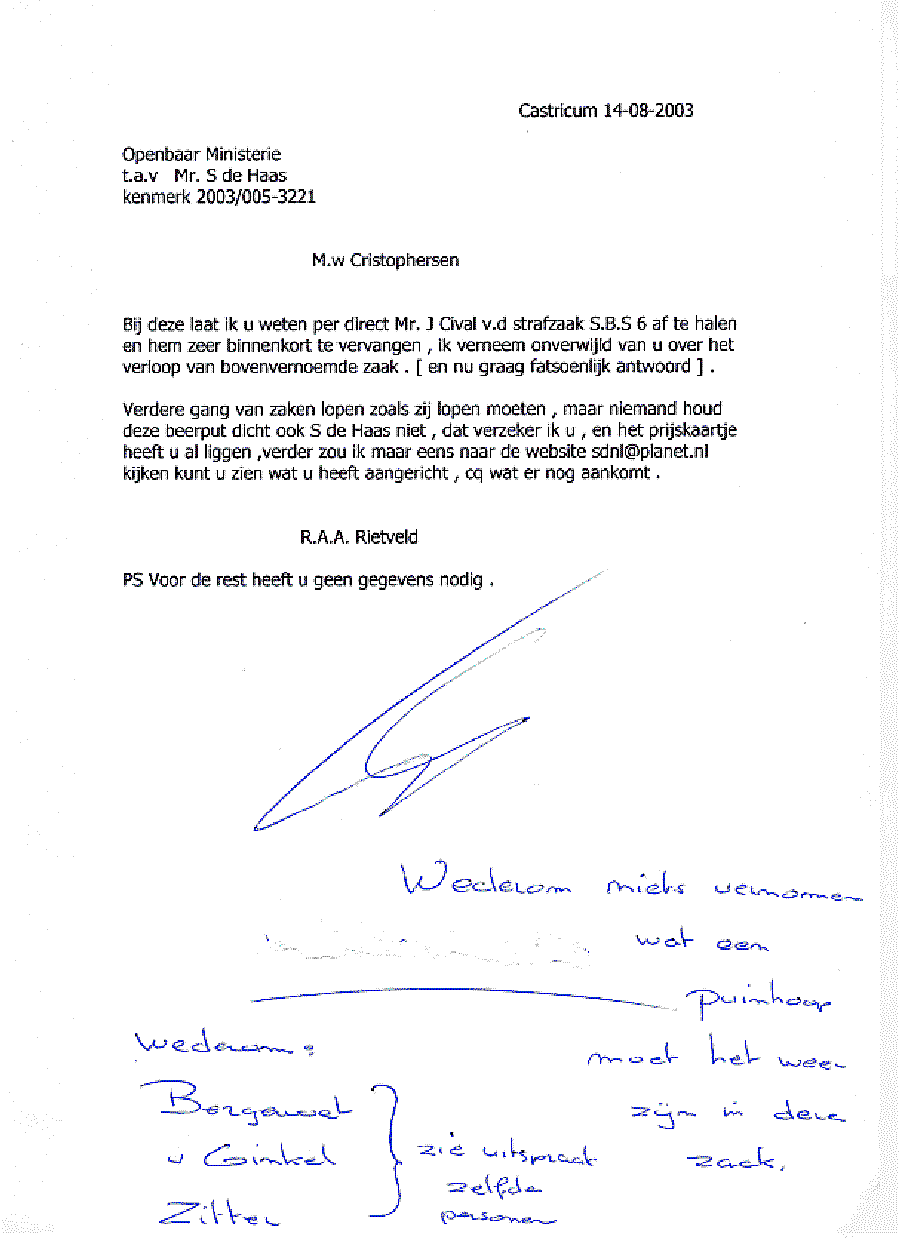 Castricum 14-08-2003
Openbaar Ministerie
t.a.v Mr. S de Haas
kenmerk 2003/005-3221
M.w Cristophersen
Bij deze laat ik u weten per direct Mr. J Cival v.d strafzaak S.B.S 6 af te halen
en hem zeer binnenkort te vervangen , ik verneem onverwijld van u over het
verloop van bovenvernoemde zaak . [ en nu graag fatsoenlijk antwoord ] .
Verdere gang van zaken lopen zoals zij lopen moeten , maar niemand houd
deze beerput dicht ook S de Haas niet , dat verzeker ik u , en het prijskaartje
heeft u al liggen ,verder zou ik maar eens naar de website sdnl@planet.nl
kijken kunt u zien wat u heeft aangericht , cq wat er nog aankomt .
R.A.A. Rietveld
PS Voor de rest heeft u geen gegevens nodig .
Wederom niets vernomen
wat een
puinhoop
moet het weer
zijn in deze
zaak.
Wederom:
v Ginkel
Zitter
zie uitspraak
zelfde
personen